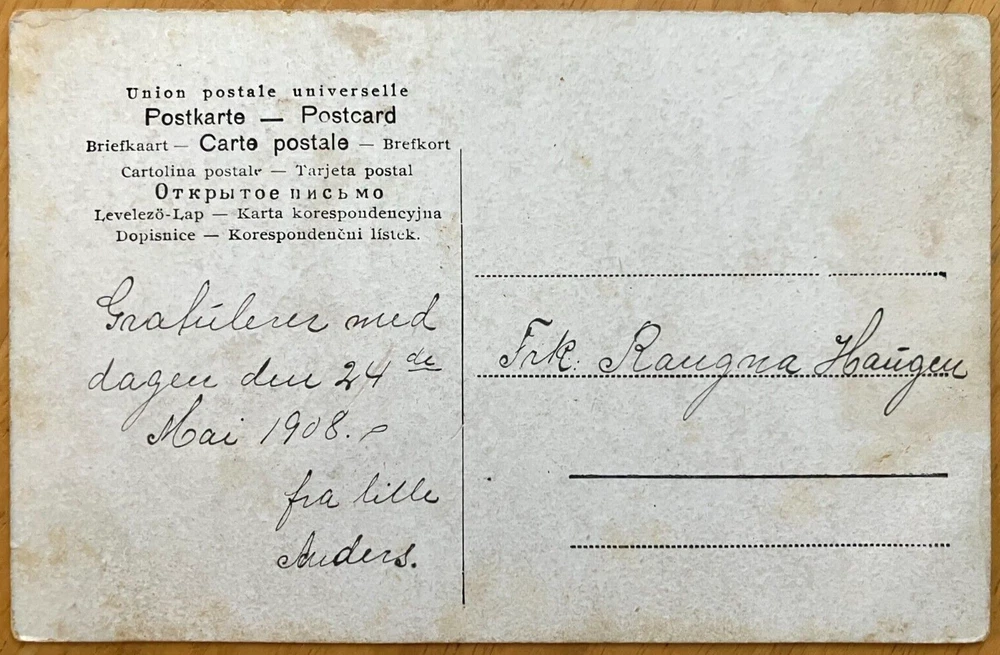 Union postale universelle
Postkarte — Postcard
Briefkaart — Carte postale — Brefkort
Cartolina postale — Tarjeta postal
Открытое письмо
Levelező-Lap — Karta korespondencyjna
Dopisnice — Korespondenčni lístek.
Gratulerer med
dagen den 24 de
Mai 1908.
fra lille
Anders.
Frk. Raugna Haugen